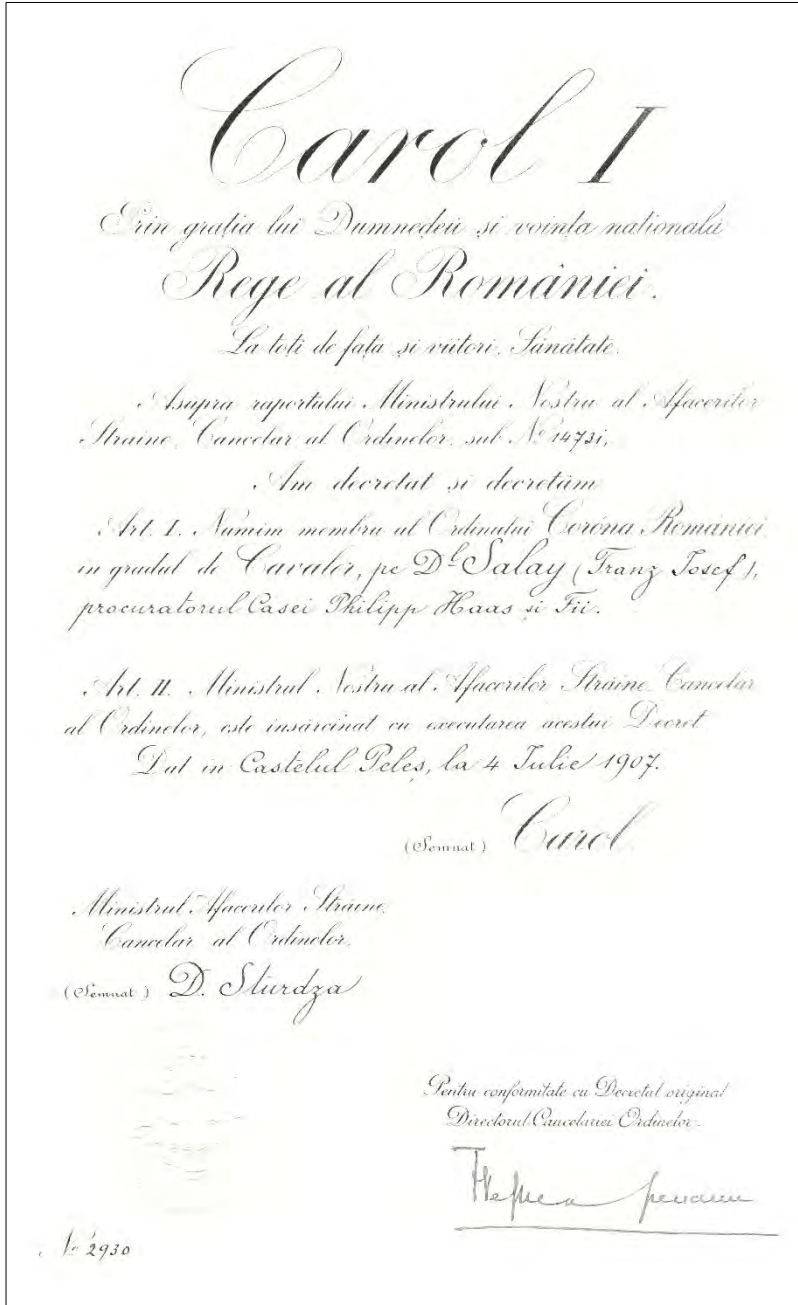 Carol I
Prin grația lui Dumnedeu și voința națională
Rege al României.
La toți de față și viitori, Sănătate.
Asupra raportului Ministrului Nostru al Afacerilor
Străine, Cancelar al Ordinelor, sub No 14731,
Am decretat și decretăm
Art. I. Numim membru al Ordinului Coróna României
in gradul de Cavaler, pe Dl Salay (Franz Iosef),
procuratorul Casei Philipp Haas și Fii.
Art. II. Ministrul Nostru al Afacerilor Străine, Cancelar
al Ordinelor, este insărcinat cu executarea acestui Decret
Dat in Castelul Peleș, la 4 Iulie 1907.
(Semnat) Carol
Ministrul Afacerilor Străine,
Cancelar al Ordinelor,
(Semnat) D. Sturdza
Pentru conformitate cu Decretul original
Directorul Cancelariei Ordinelor.
No 2930